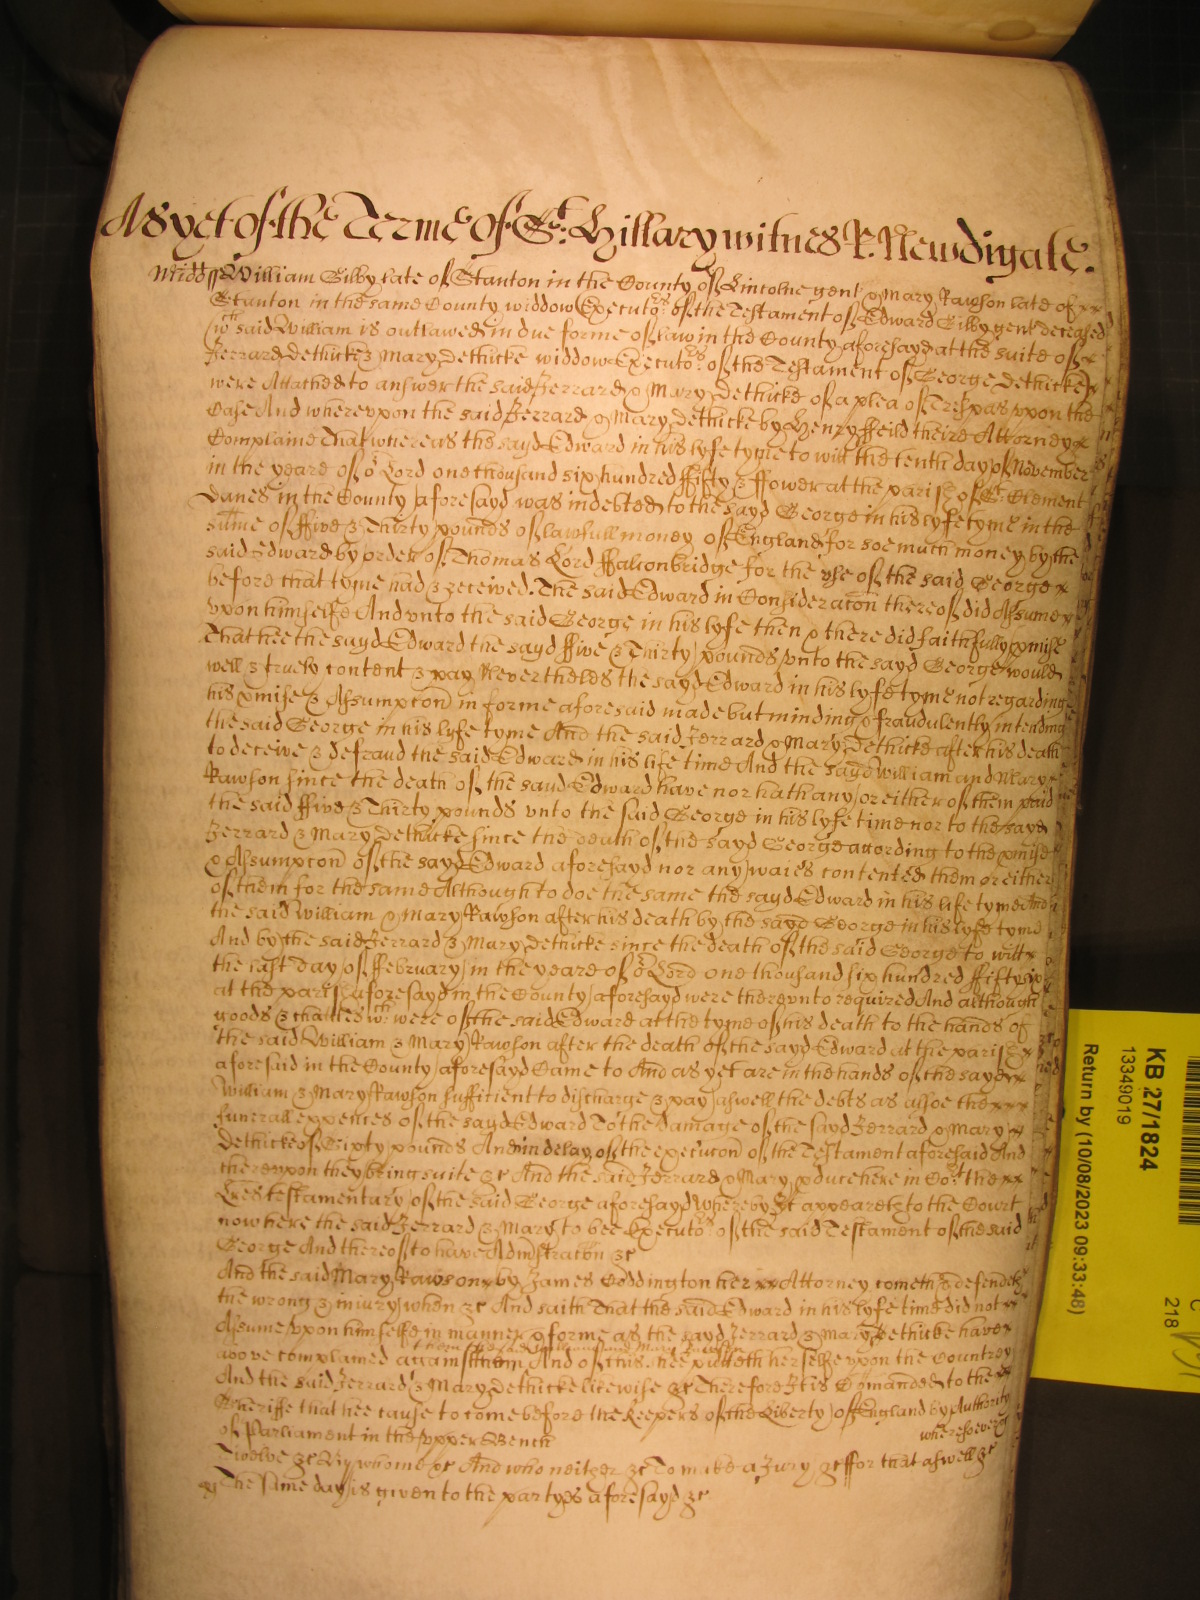 As yet of the Terme of St. Hillary witnes R. Newdigate.
Midds William Gilby late of Stanton in the County of Lincolne gent & Mary Rawson late of xx
Stanton in the same County widdow Executors of the Testament of Edward Gilby gent deceased
(wch said William is outlawed in due forme of law in the County aforesayd at the suite of x
Jerrard Dethicke & Mary Dethicke widdow Executors of the Testament of George Dethicke)
were Attached to answer the said Jerrard & Mary Dethicke of a plea of Trespas vpon the
Case And wherevpon the said Jerrard & Mary Dethicke by Henry ffeild theire Attorney x
Complaine That whereas the sayd Edward in his lyfe tyme to witt the tenth day of November
in the yeare of or Lord one thousand six hundred ffifty & ffower at the parish of St. Clement
Danes in the County aforesayd was indebted to the sayd George in his lyfe tyme in the
sume of ffive & Thirty pounds of lawfull money of England for soe much money by the
said Edward by order of Thomas Lord ffalconbridge for the vse of the said George x
before that tyme had & received. The said Edward in Consideracon thereof did Assume x
vpon himselfe And vnto the said George in his lyfe then & there did faithfully pmise
That hee the sayd Edward the sayd ffive & Thirty pounds vnto the sayd George would
well & truely content & pay Nevertheles the sayd Edward in his lyfe tyme not regarding
his pmise & Assumpcon in forme aforesaid made but minding & fraudulently intending
the said George in his lyfe tyme And the said Jerrard & Mary Dethicke after his death
to deceive & defraud the said Edward in his life time And the sayd William and Mary
Rawson since the death of the sayd Edward have nor hath any or either of them paid
the said ffive & Thirty pounds vnto the said George in his lyfe time nor to the sayd
Jerrard & Mary Dethicke since the death of the sayd George according to the pmise
& Assumpcon of the sayd Edward aforesayd nor any waies contented them or either
of them for the same Although to doe the same the sayd Edward in his life tyme And
the said William & Mary Rawson after his death by the sayd George in his lyfe tyme
And by the said Jerrard & Mary Dethicke since the death of the said George to witt x
the last day of ffebruary in the yeare of or Lord one thousand six hundred ffifty six
at the parish aforesayd in the County aforesayd were therevnto required And although
goods & chattles wch were of the said Edward at the tyme of his death to the hands of
the said William & Mary Rawson after the death of the sayd Edward at the parish x
aforesaid in the County aforesayd Came to And as yet are in the hands of the sayd xx
William & Mary Rawson sufficient to discharge & pay aswell the debts as alsoe the xxx
funerall expences of the sayd Edward To the damage of the sayd Jerrard & Mary x
Dethicke of Sixty pounds And in delay of the execucon of the Testament aforesaid And
therevpon they bring suite &c And the said Jerrard & Mary pduce here in Cort the xx
Lres testamentary of the said George aforesayd whereby it appeareth to the Court
now here the said Jerrard & Mary to bee Executors of the said Testament of the said
George And thereof to have Adminstracon &c
And the said Mary Rawson x by James Coddington her xx Attorney cometh & defendeth
the wrong & iniury when &c And saith That the said Edward in his lyfe time did not x
Assume vpon himselfe in manner & forme as the sayd Jerrard & Mary Dethicke have x
them the said William and Mary Rawson
above complained against them And of this shee putteth herselfe vpon the Countrey
And the said Jerrard & Mary Dethicke likewise &c Therefore It is Comanded to the
Sheriffe that hee cause to come before the Keepers of the Liberty of England by Authority
of Parliament in the vpper Bench wheresoever
Twelve &c By whome &c And who neither &c To make a Jury &c ffor that aswell &c
The same day is given to the partyes aforesayd &c
KB 27/1824
13349019
Return by (10/08/2023 09:33:48)
218